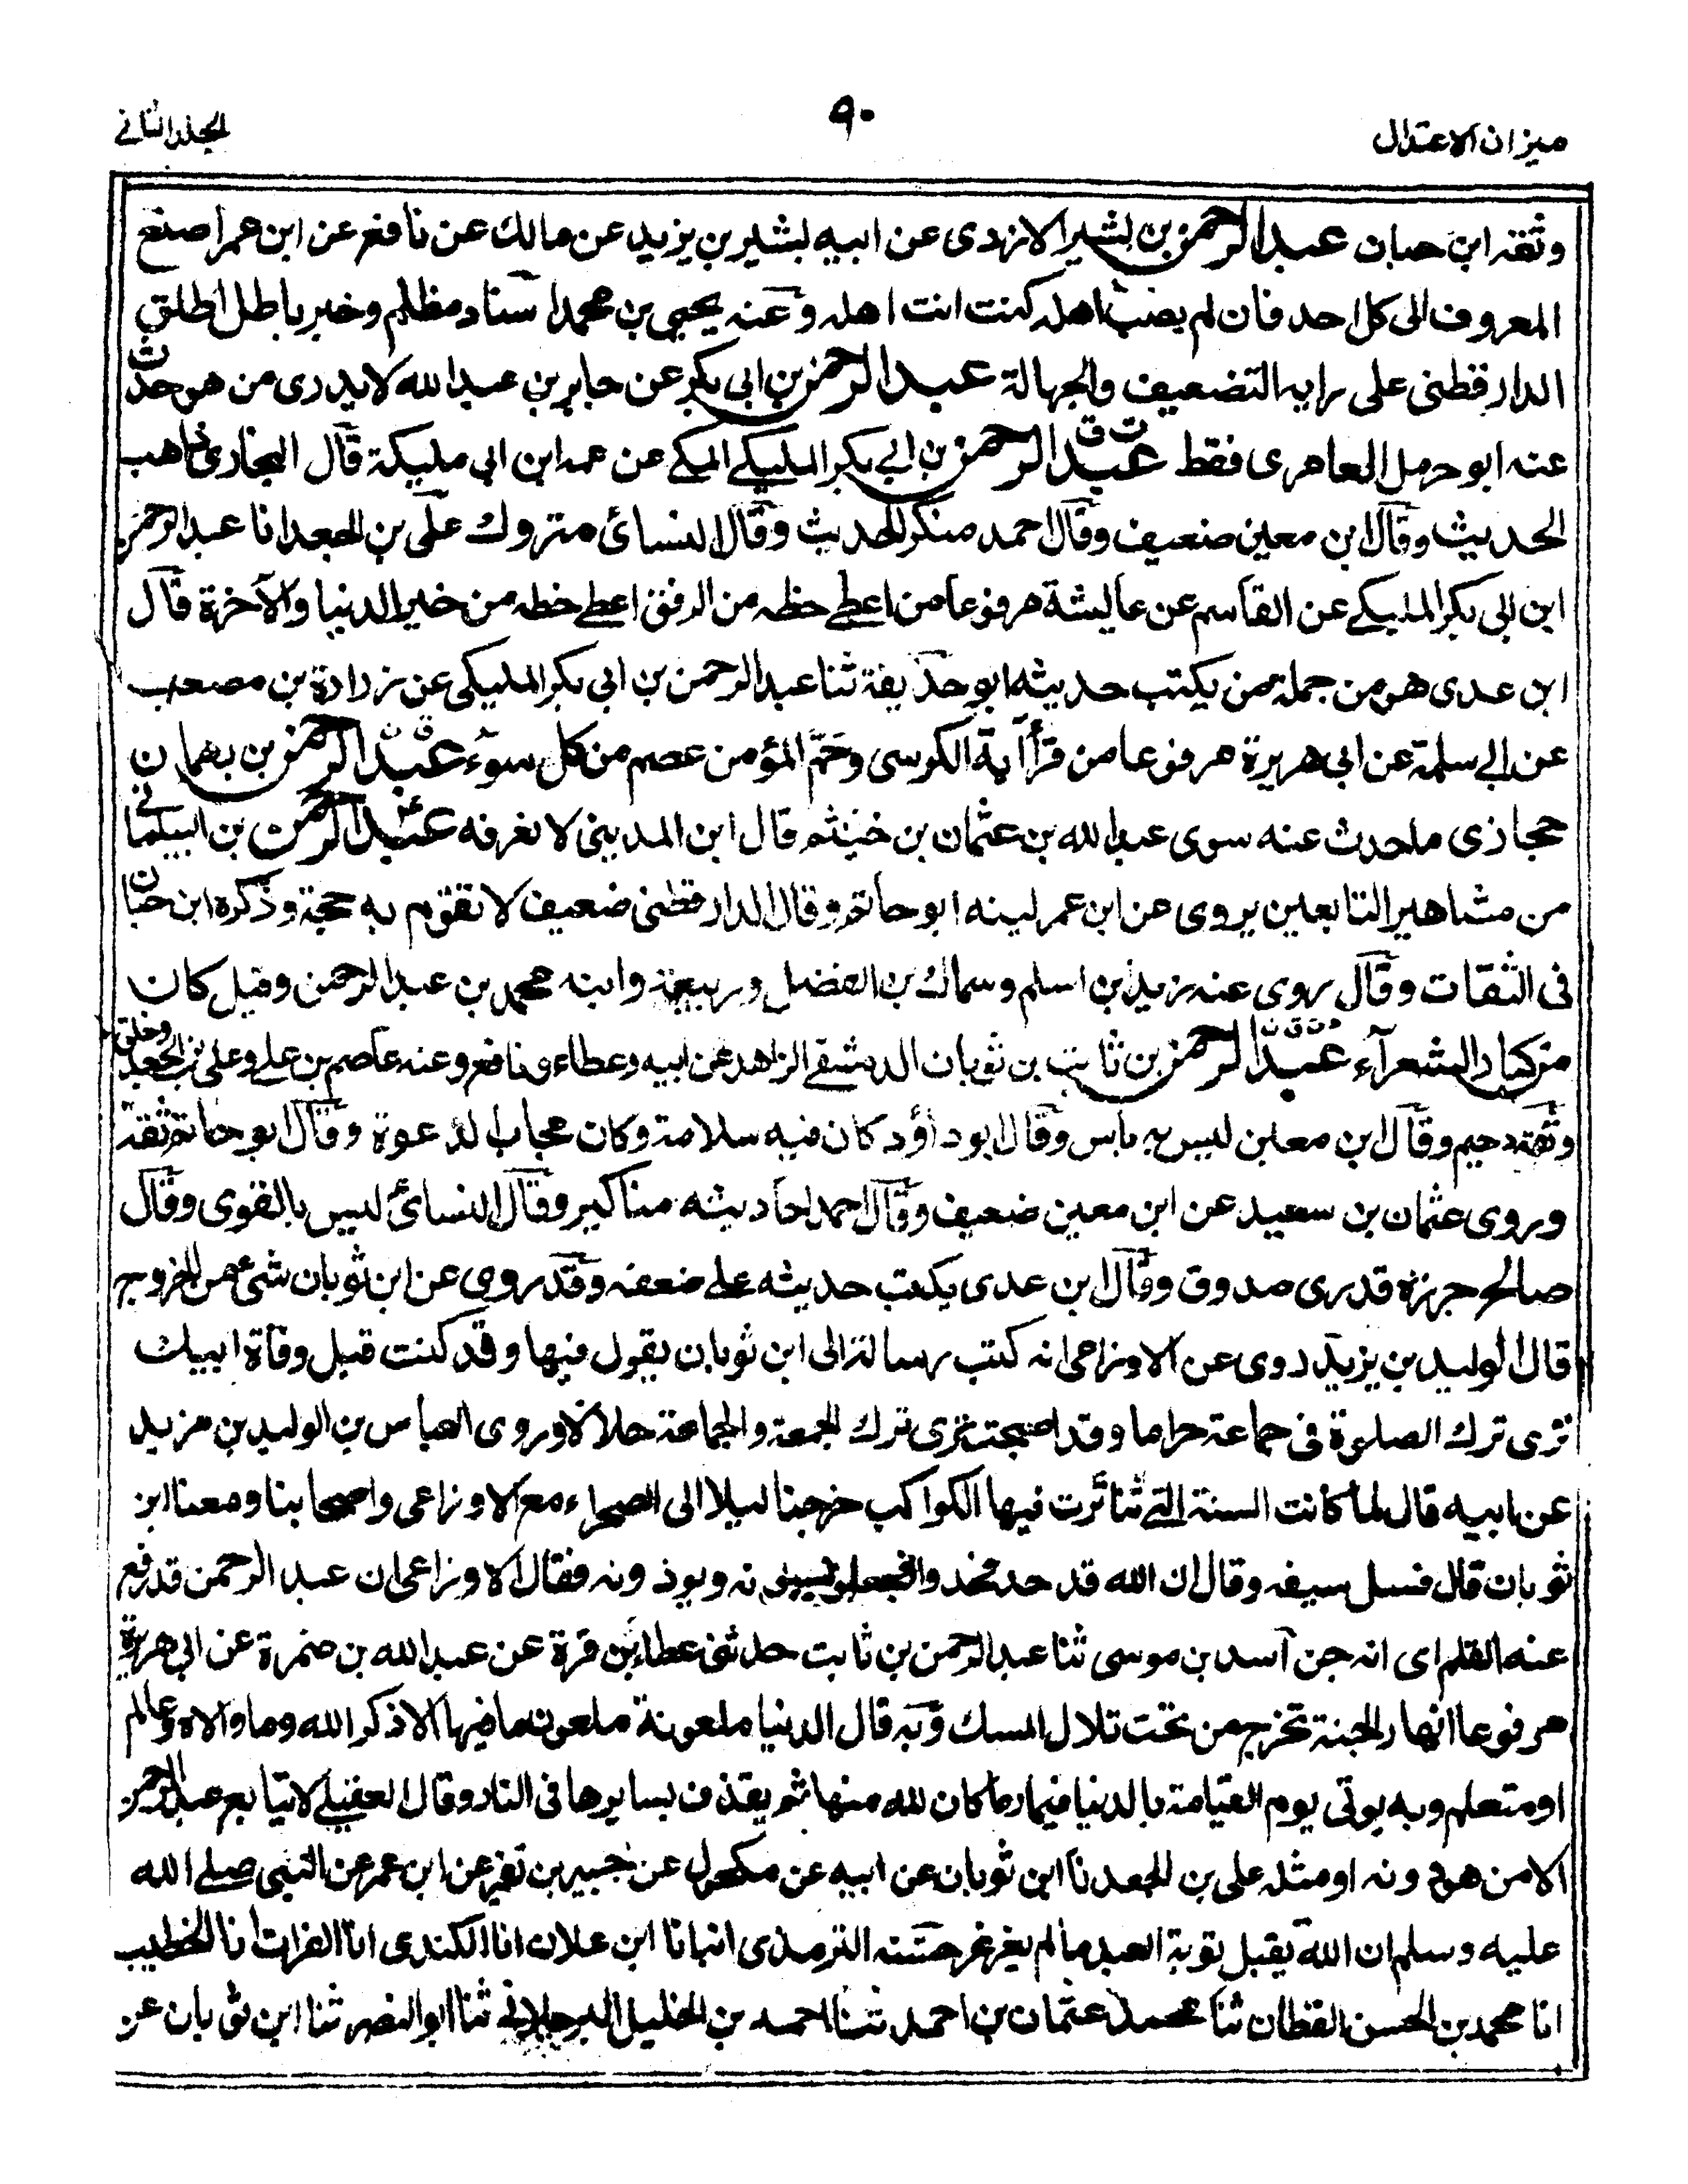 ميزان الاعتدال
٩٠
الجلد الثاني
وثقه ابن حبان عبد الرحمن بن بشير الازدى عن ابيه بشير بن يزيد عن مالك عن نافع عن ابن عمر اصنع
المعروف الى كل احد فان لم يصب اهله كنت انت اهله وعنه يحيى بن محمد اسناد مظلم وخبر باطل اطلق
الدارقطنى على رايه التضعيف والجهالة عبد الرحمن بن ابى بكر عن جابر بن عبد الله لا يدرى من هو حدث
عنه ابو حرمل العامرى فقط عبد الرحمن بن ابي بكر المليكي المكي عن عمه ابن ابى مليكة قال البخارى ذاهب
الحديث وقال ابن معين ضعيف وقال احمد منكر الحديث وقال النسائ متروك على بن الجعد انا عبد الرحمن
ابن ابى بكر المليكي عن القاسم عن عايشة مرفوعا من اعطي حظه من الرفق اعطي حظه من خير الدنيا والآخرة قال
ابن عدى هو من جملة من يكتب حديثه ابو حذيفة ثنا عبد الرحمن بن ابى بكر المليكى عن زرارة بن مصعب
عن ابي سلمة عن ابى هريرة مرفوعا من قرأ آية الكرسى وحم المؤمن عصم من كل سوء عبد الرحمن بن بهمان
حجازى ما حدث عنه سوى عبد الله بن عثمان بن خيثم قال ابن المدينى لا نعرفه عبد الرحمن بن البيلمانى
من مشاهير التابعين يروى عن ابن عمر لينه ابو حاتم وقال الدارقطنى ضعيف لا تقوم به حجة وذكره ابن حبان
فى الثقات وقال روى عنه زيد بن اسلم وسماك بن الفضل وربيعة وابنه محمد بن عبد الرحمن وقيل كان
من كبار الشعرآء عبد الرحمن بن ثابت بن ثوبان الدمشقي الزاهد عن ابيه وعطاء ونافع وعنه عاصم بن علي وعلى بن الجعد وخلق
وثقه دحيم وقال ابن معين ليس به باس وقال ابو داؤد كان فيه سلامة وكان مجاب الدعوة وقال ابو حاتم ثقة
وروى عثمان بن سعيد عن ابن معين ضعيف وقال احمد احاديثه مناكير وقال النسائ ليس بالقوى وقال
صالح جزرة قدرى صدوق وقال ابن عدى يكتب حديثه على ضعفه وقد روى عن ابن ثوبان شئ من الخروج
قال الوليد بن يزيد روى عن الاوزاعى انه كتب رسالة الى ابن ثوبان يقول فيها وقد كنت قبل وفاة ابيك
ترى ترك الصلوة فى جماعة حراما وقد اصبحت ترى ترك الجمعة والجماعة حلالا وروى العباس بن الوليد بن مزيد
عن ابيه قال لما كانت السنة التي تناثرت فيها الكواكب خرجنا ليلا الى الصحراء مع الاوزاعى واصحابنا ومعنا ابن
ثوبان قال فسل سيفه وقال ان الله قد جد فجدوا فجعلوا يسبونه ويوذونه فقال الاوزاعى ان عبد الرحمن قد رفع
عنه القلم اى انه جن اسد بن موسى ثنا عبد الرحمن بن ثابت حدثنى عطاء بن قرة عن عبد الله بن ضمرة عن ابى هريرة
مرفوعا انهار الجنة تخرج من تحت تلال المسك وبه قال الدنيا ملعونة ملعون ما فيها الا ذكر الله وما والاه وعالم
او متعلم وبه يوتى يوم القيامة بالدنيا فيماز ما كان لله منها ثم يقذف بسايرها فى النار وقال العقيلي لا يتابع عبد الرحمن
الا من هو دونه او مثله على بن الجعد نا ابن ثوبان عن ابيه عن مكحول عن جبير بن نفير عن ابن عمر عن النبى صلى الله
عليه وسلم ان الله يقبل توبة العبد ما لم يغرغر حسنه الترمذى انبانا ابن علان انا الكندى انا القزاز انا الخطيب
انا محمد بن الحسن القطان ثنا محمد عثمان بن احمد ثنا احمد بن الخليل البرجلاني ثنا ابو النضر ثنا ابن ثوبان عن